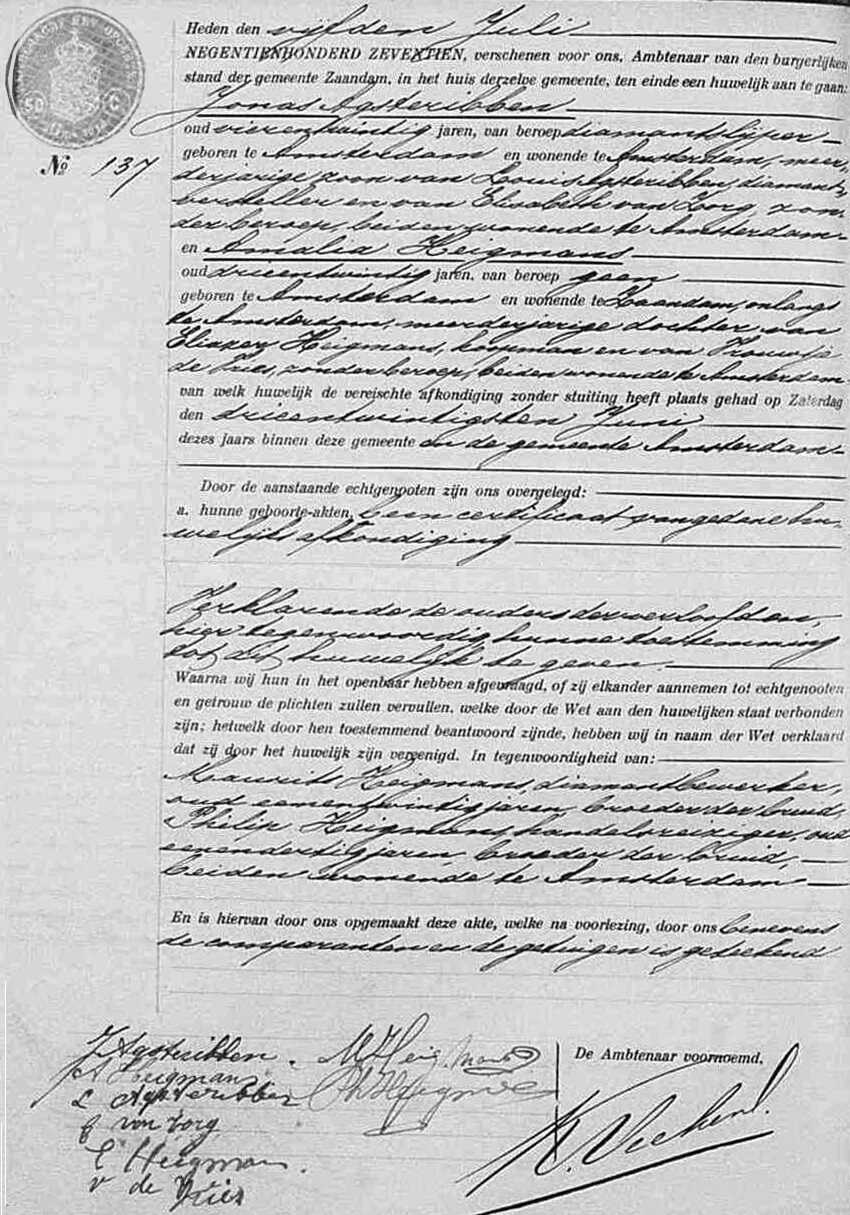 Heden den vijfden Juli
NEGENTIENHONDERD ZEVENTIEN, verschenen voor ons, Ambtenaar van den burgerlijken
stand der gemeente Zaandam, in het huis derzelve gemeente, ten einde een huwelijk aan te gaan:
50 C
Jonas Agsteribben
oud vierentwintig jaren, van beroep diamantslijper
No 137
geboren te Amsterdam en wonende te Amsterdam, meer,
derjarige zoon van Louis Agsteribben, diamant,
versteller en van Elisabeth van Zorg, zon,
der beroep, beiden wonende te Amsterdam
en Amalia Heigmans
oud drieentwintig jaren, van beroep geen
geboren te Amsterdam en wonende te Zaandam, onlangs
te Amsterdam, meerderjarige dochter van
Eliazer Heigmans, koopman en van Vrouwtje
de Vries, zonder beroep, beiden wonende te Amsterdam
van welk huwelijk de vereischte afkondiging zonder stuiting heeft plaats gehad op Zaterdag
den drieentwintigsten Juni
dezes jaars binnen deze gemeente en de gemeente Amsterdam
Door de aanstaande echtgenooten zijn ons overgelegd:
a. hunne geboorte-akten, b een certificaat van gedane hu,
welijks afkondiging
Verklarende de ouders der verloofden,
hier tegenwoordig hunne toestemming
tot dit huwelijk te geven
Waarna wij hun in het openbaar hebben afgevraagd, of zij elkander aannemen tot echtgenooten
en getrouw de plichten zullen vervullen, welke door de Wet aan den huwelijken staat verbonden
zijn; hetwelk door hen toestemmend beantwoord zijnde, hebben wij in naam der Wet verklaard
dat zij door het huwelijk zijn vereenigd. In tegenwoordigheid van:
Maurits Heigmans, diamantbewerker,
oud eenentwintig jaren, broeder der bruid,
Philip Heigmans, handelsreiziger, oud
eenendertig jaren, broeder der bruid,
beiden wonende te Amsterdam
En is hiervan door ons opgemaakt deze akte, welke na voorlezing, door ons benevens
de comparanten en de getuigen is geteekend
J Agsteribben. M Heigmans
A Heigmans Ph Heigmans
L Agsteribben
E van Zorg
E Heigmans.
V de Vries
De Ambtenaar voornoemd,